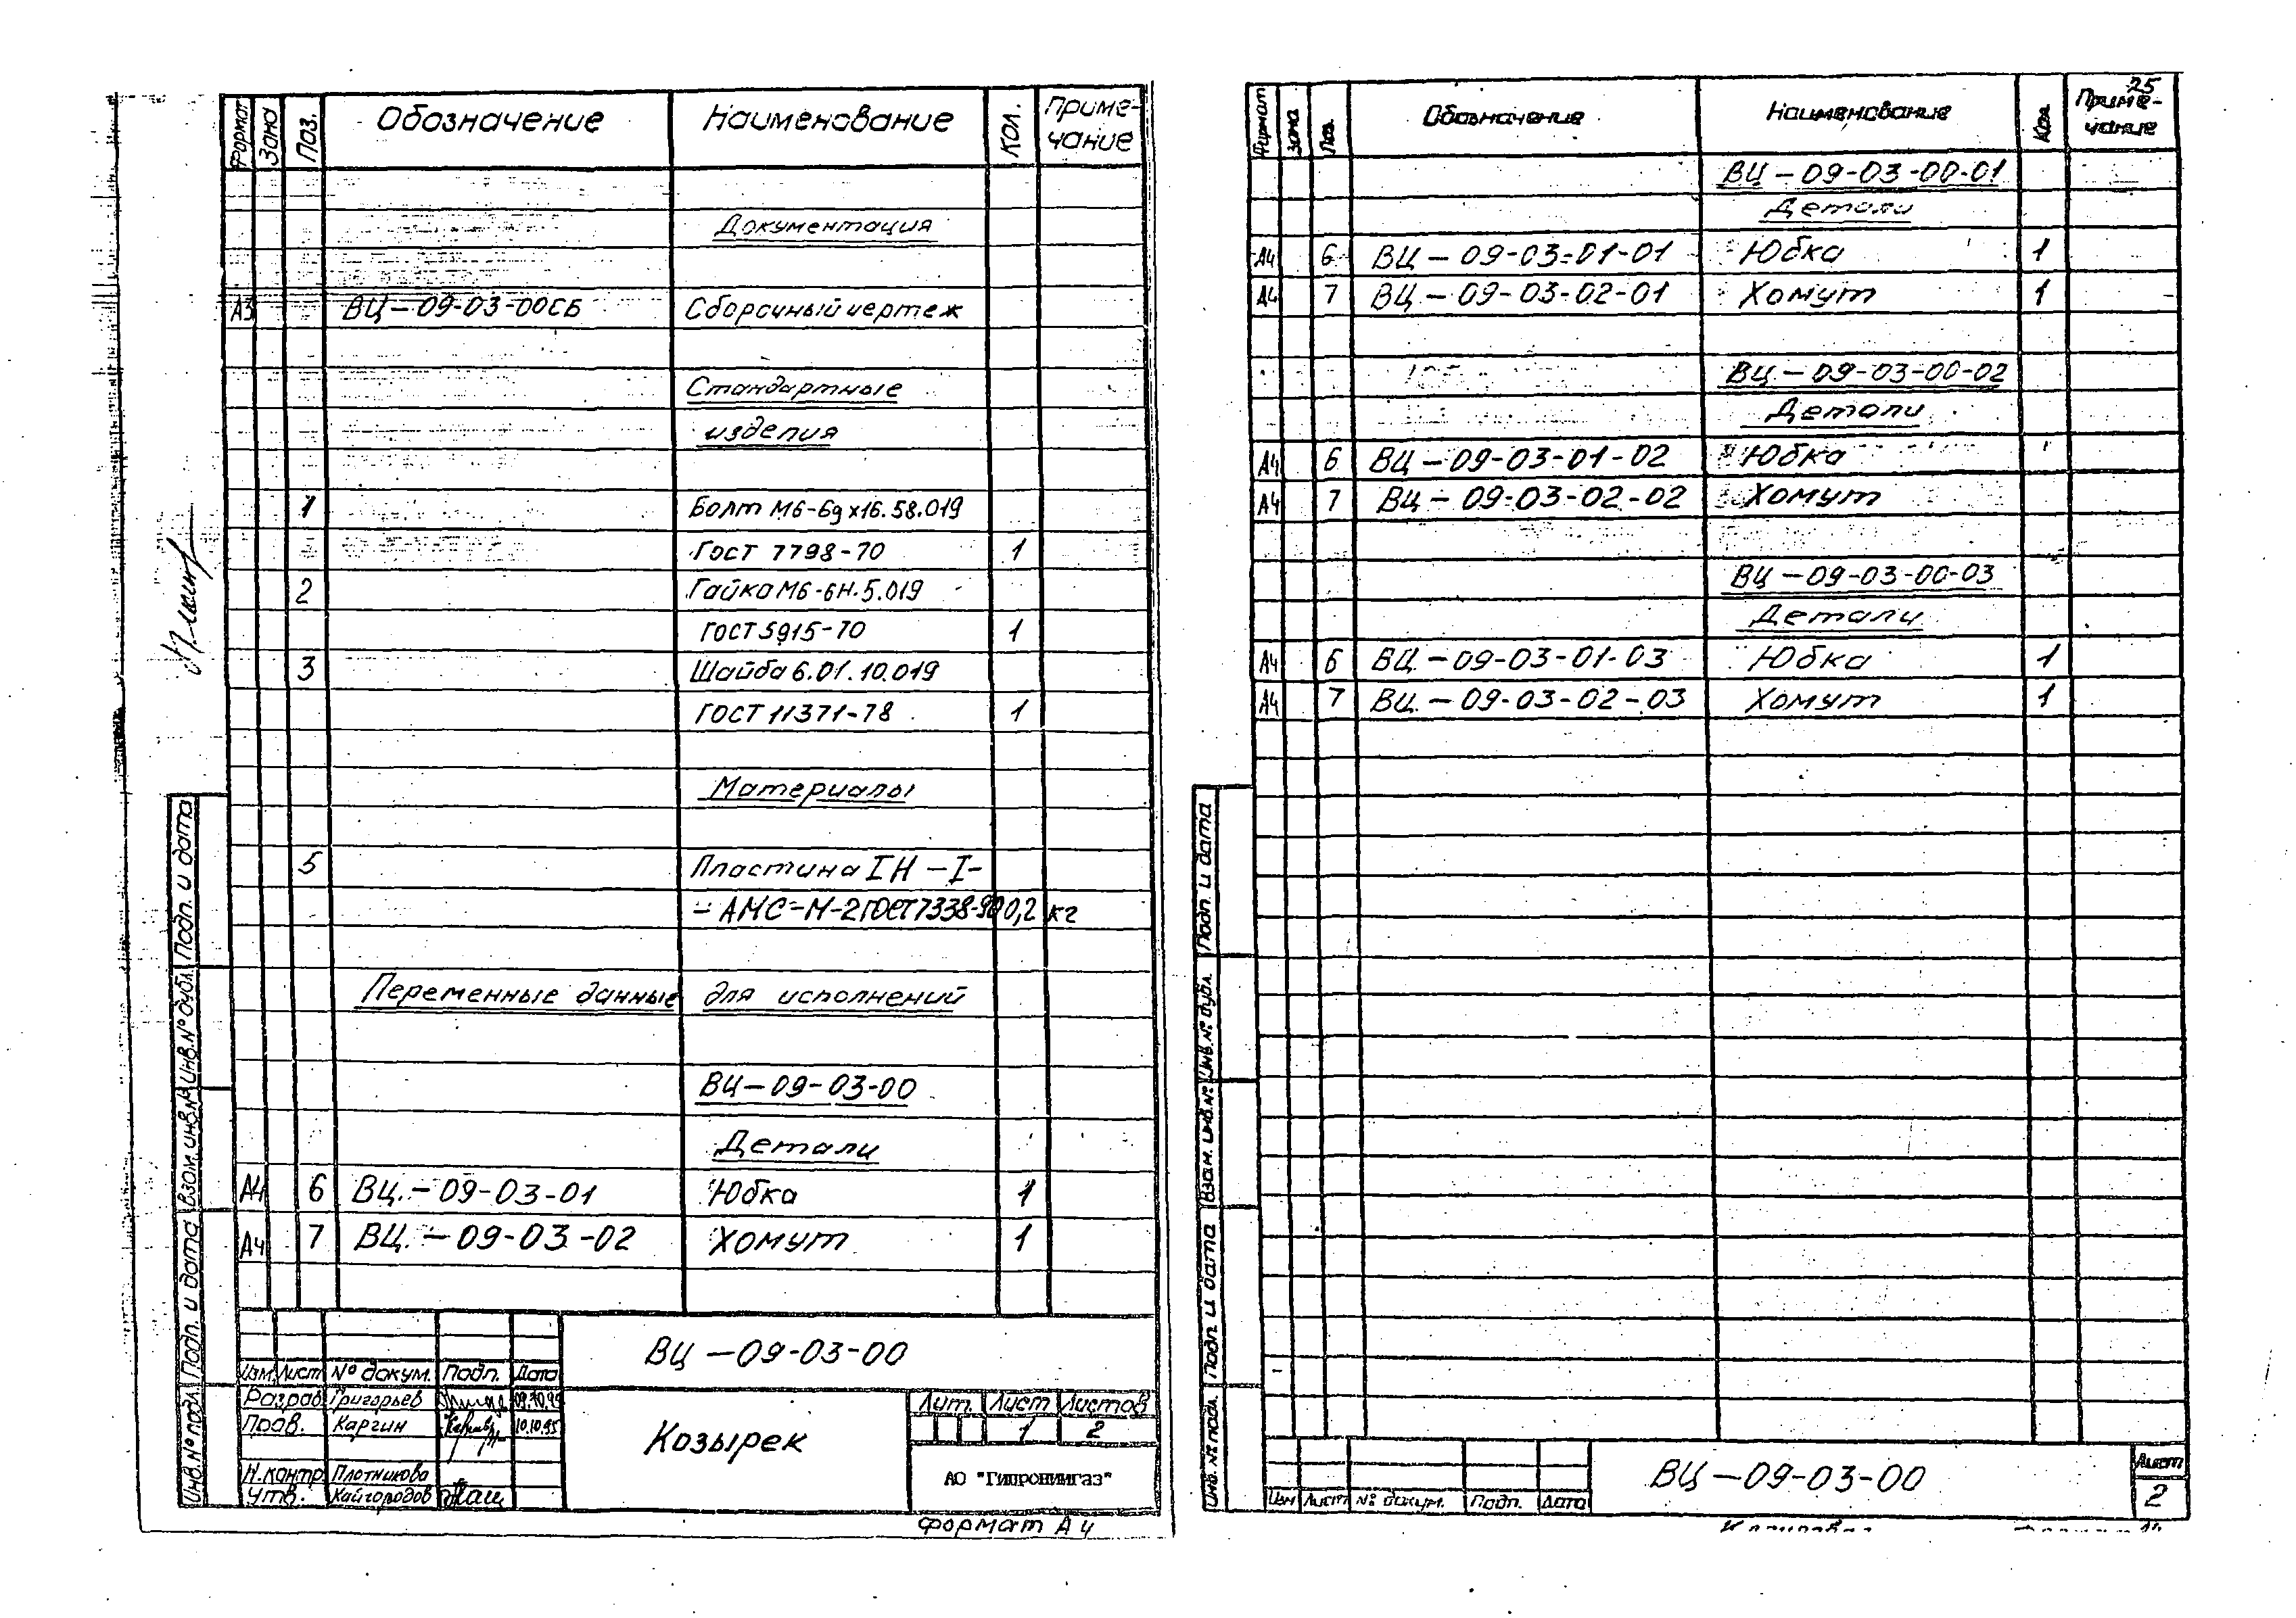 Формат Зона Поз. Обозначение Наименование Кол. Приме-
чание
Документация
А3 ВЦ-09-03-00СБ Сборочный чертеж
Стандартные
изделия
1 Болт М6-6gх16.58.019
Гост 7798-70 1
2 Гайка М6-6Н.5.019
ГОСТ 5915-70 1
3 Шайба 6.01.10.019
ГОСТ 11371-78 1
Материалы
5 Пластина IН-I-
-АМС-М-2 ГОСТ 7338-90 0,2 кг
Переменные данные для исполнений
ВЦ-09-03-00
Детали
А4 6 ВЦ.-09-03-01 Юбка 1
А4 7 ВЦ.-09-03-02 Хомут 1
Инв.№ подл. Подп. и дата Взам.инв.№ Инв.№ дубл. Подп. и дата
ВЦ-09-03-00
Изм. Лист № докум. Подп. Дата
Разраб. Григорьев
Пров. Каргин 10.10.95
Н.контр. Плотникова
Утв. Кайгородов
Козырек
Лит. Лист Листов
1 2
АО "Гипрониигаз"
Формат А4
25
Формат Зона Поз. Обозначение Наименование Кол. Приме-
чание
ВЦ-09-03-00-01
Детали
А4 6 ВЦ-09-03-01-01 Юбка 1
А4 7 ВЦ-09-03-02-01 Хомут 1
ВЦ-09-03-00-02
Детали
А4 6 ВЦ-09-03-01-02 Юбка
А4 7 ВЦ-09-03-02-02 Хомут
ВЦ-09-03-00-03
Детали
А4 6 ВЦ-09-03-01-03 Юбка 1
А4 7 ВЦ.-09-03-02-03 Хомут 1
Инв. № подл. Подп. и дата Взам. инв.№ Инв.№ дубл. Подп. и дата
Изм Лист № докум. Подп. Дата
ВЦ-09-03-00
Лист
2